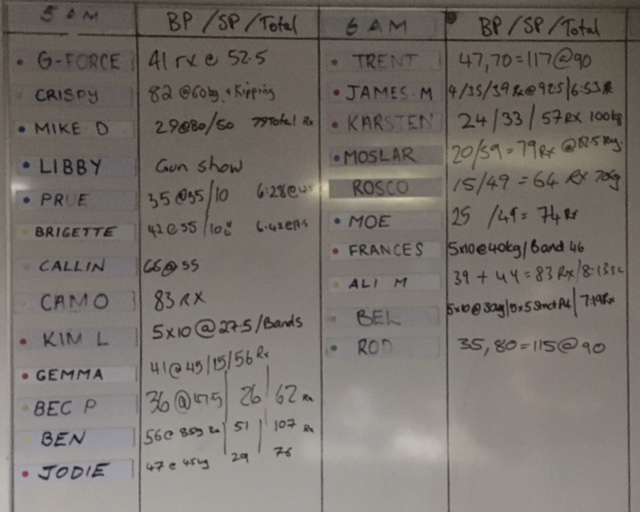 5 AM BP/SP/Total
G-FORCE 41 rx @ 52.5
CRISPY 82 @60kg + Kipping
MIKE D 29@80/50 79Total Rx
LIBBY Gun show
PRUE 35 @35/10 6:28@
BRIGETTE 42@35/10
CALLIN 66@55
CAMO 83 RX
KIM L 5x10 @ 27.5/Bands
GEMMA 41@45/15/56 Rx
BEC P 36 @ 26 62 Rx
BEN 56@ 51 107 Rx
JODIE 47@45kg 29 76
6 AM BP/SP/Total
TRENT 47,70=117@90
JAMES.M 4/35/39 Rx@92.5/6:53
KARSTEN 24/33/57 RX 100kg
MOSLAR 20/59=79 Rx
ROSCO 15/49=64 Rx 70kg
MOE 25 /49=74 Rx
FRANCES 5x10@40kg/Band 46
ALI M 39 + 44=83 Rx/8:13
BEL 5x10@30kg/5x5 Strict /7:19Rx
ROD 35,80=115@90